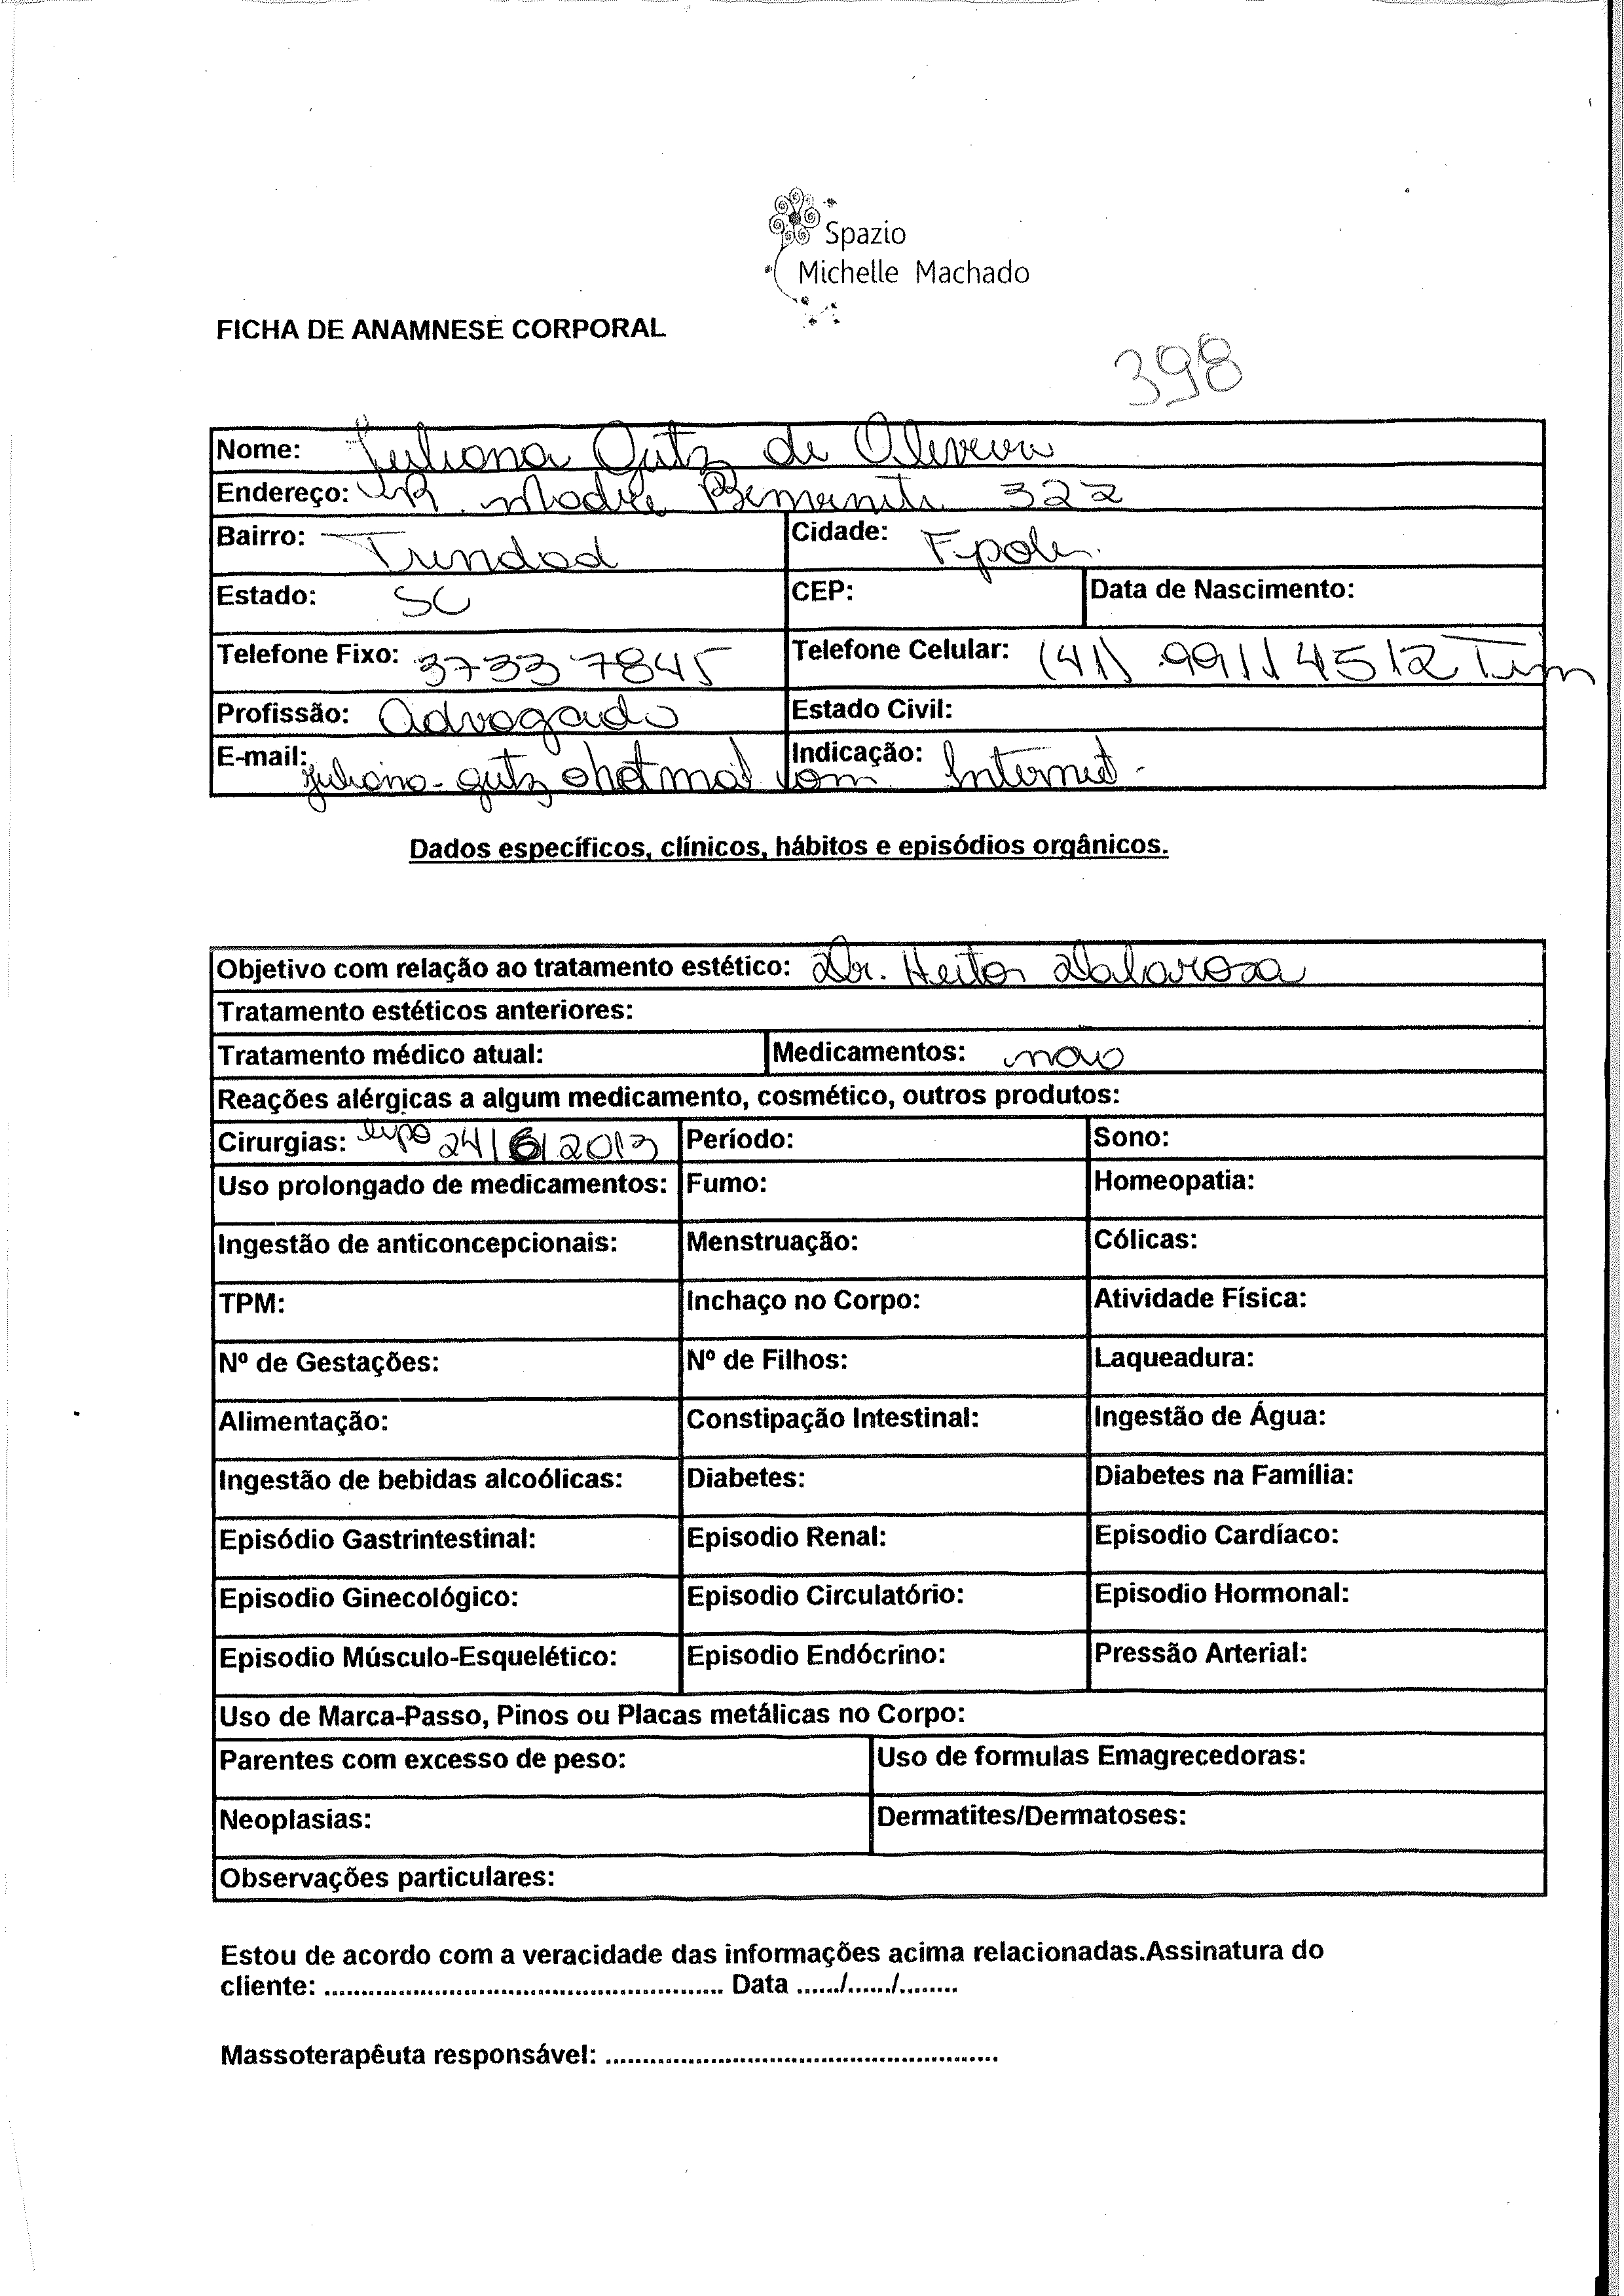 Spazio
Michelle Machado
FICHA DE ANAMNESE CORPORAL
398
Nome: Juliana Gutz de Oliveira
Endereço: R. Madre Benvenuta 322
Bairro: Trindad Cidade: Fpolis.
Estado: SC CEP: Data de Nascimento:
Telefone Fixo: 3733 7845 Telefone Celular: (41) 9911 4512 Tim
Profissão: Advogada Estado Civil:
E-mail: juliana-gutz@hotmail.com Indicação: Internet.
Dados específicos, clínicos, hábitos e episódios orgânicos.
Objetivo com relação ao tratamento estético: Dr. Heitor Dalarosa
Tratamento estéticos anteriores:
Tratamento médico atual: Medicamentos: não
Reações alérgicas a algum medicamento, cosmético, outros produtos:
Cirurgias: lipo 24/6/2013 Período: Sono:
Uso prolongado de medicamentos: Fumo: Homeopatia:
Ingestão de anticoncepcionais: Menstruação: Cólicas:
TPM: Inchaço no Corpo: Atividade Física:
Nº de Gestações: Nº de Filhos: Laqueadura:
Alimentação: Constipação Intestinal: Ingestão de Água:
Ingestão de bebidas alcoólicas: Diabetes: Diabetes na Família:
Episódio Gastrintestinal: Episodio Renal: Episodio Cardíaco:
Episodio Ginecológico: Episodio Circulatório: Episodio Hormonal:
Episodio Músculo-Esquelético: Episodio Endócrino: Pressão Arterial:
Uso de Marca-Passo, Pinos ou Placas metálicas no Corpo:
Parentes com excesso de peso: Uso de formulas Emagrecedoras:
Neoplasias: Dermatites/Dermatoses:
Observações particulares:
Estou de acordo com a veracidade das informações acima relacionadas.Assinatura do
cliente: ...................................................... Data ....../....../........
Massoterapêuta responsável: .....................................................